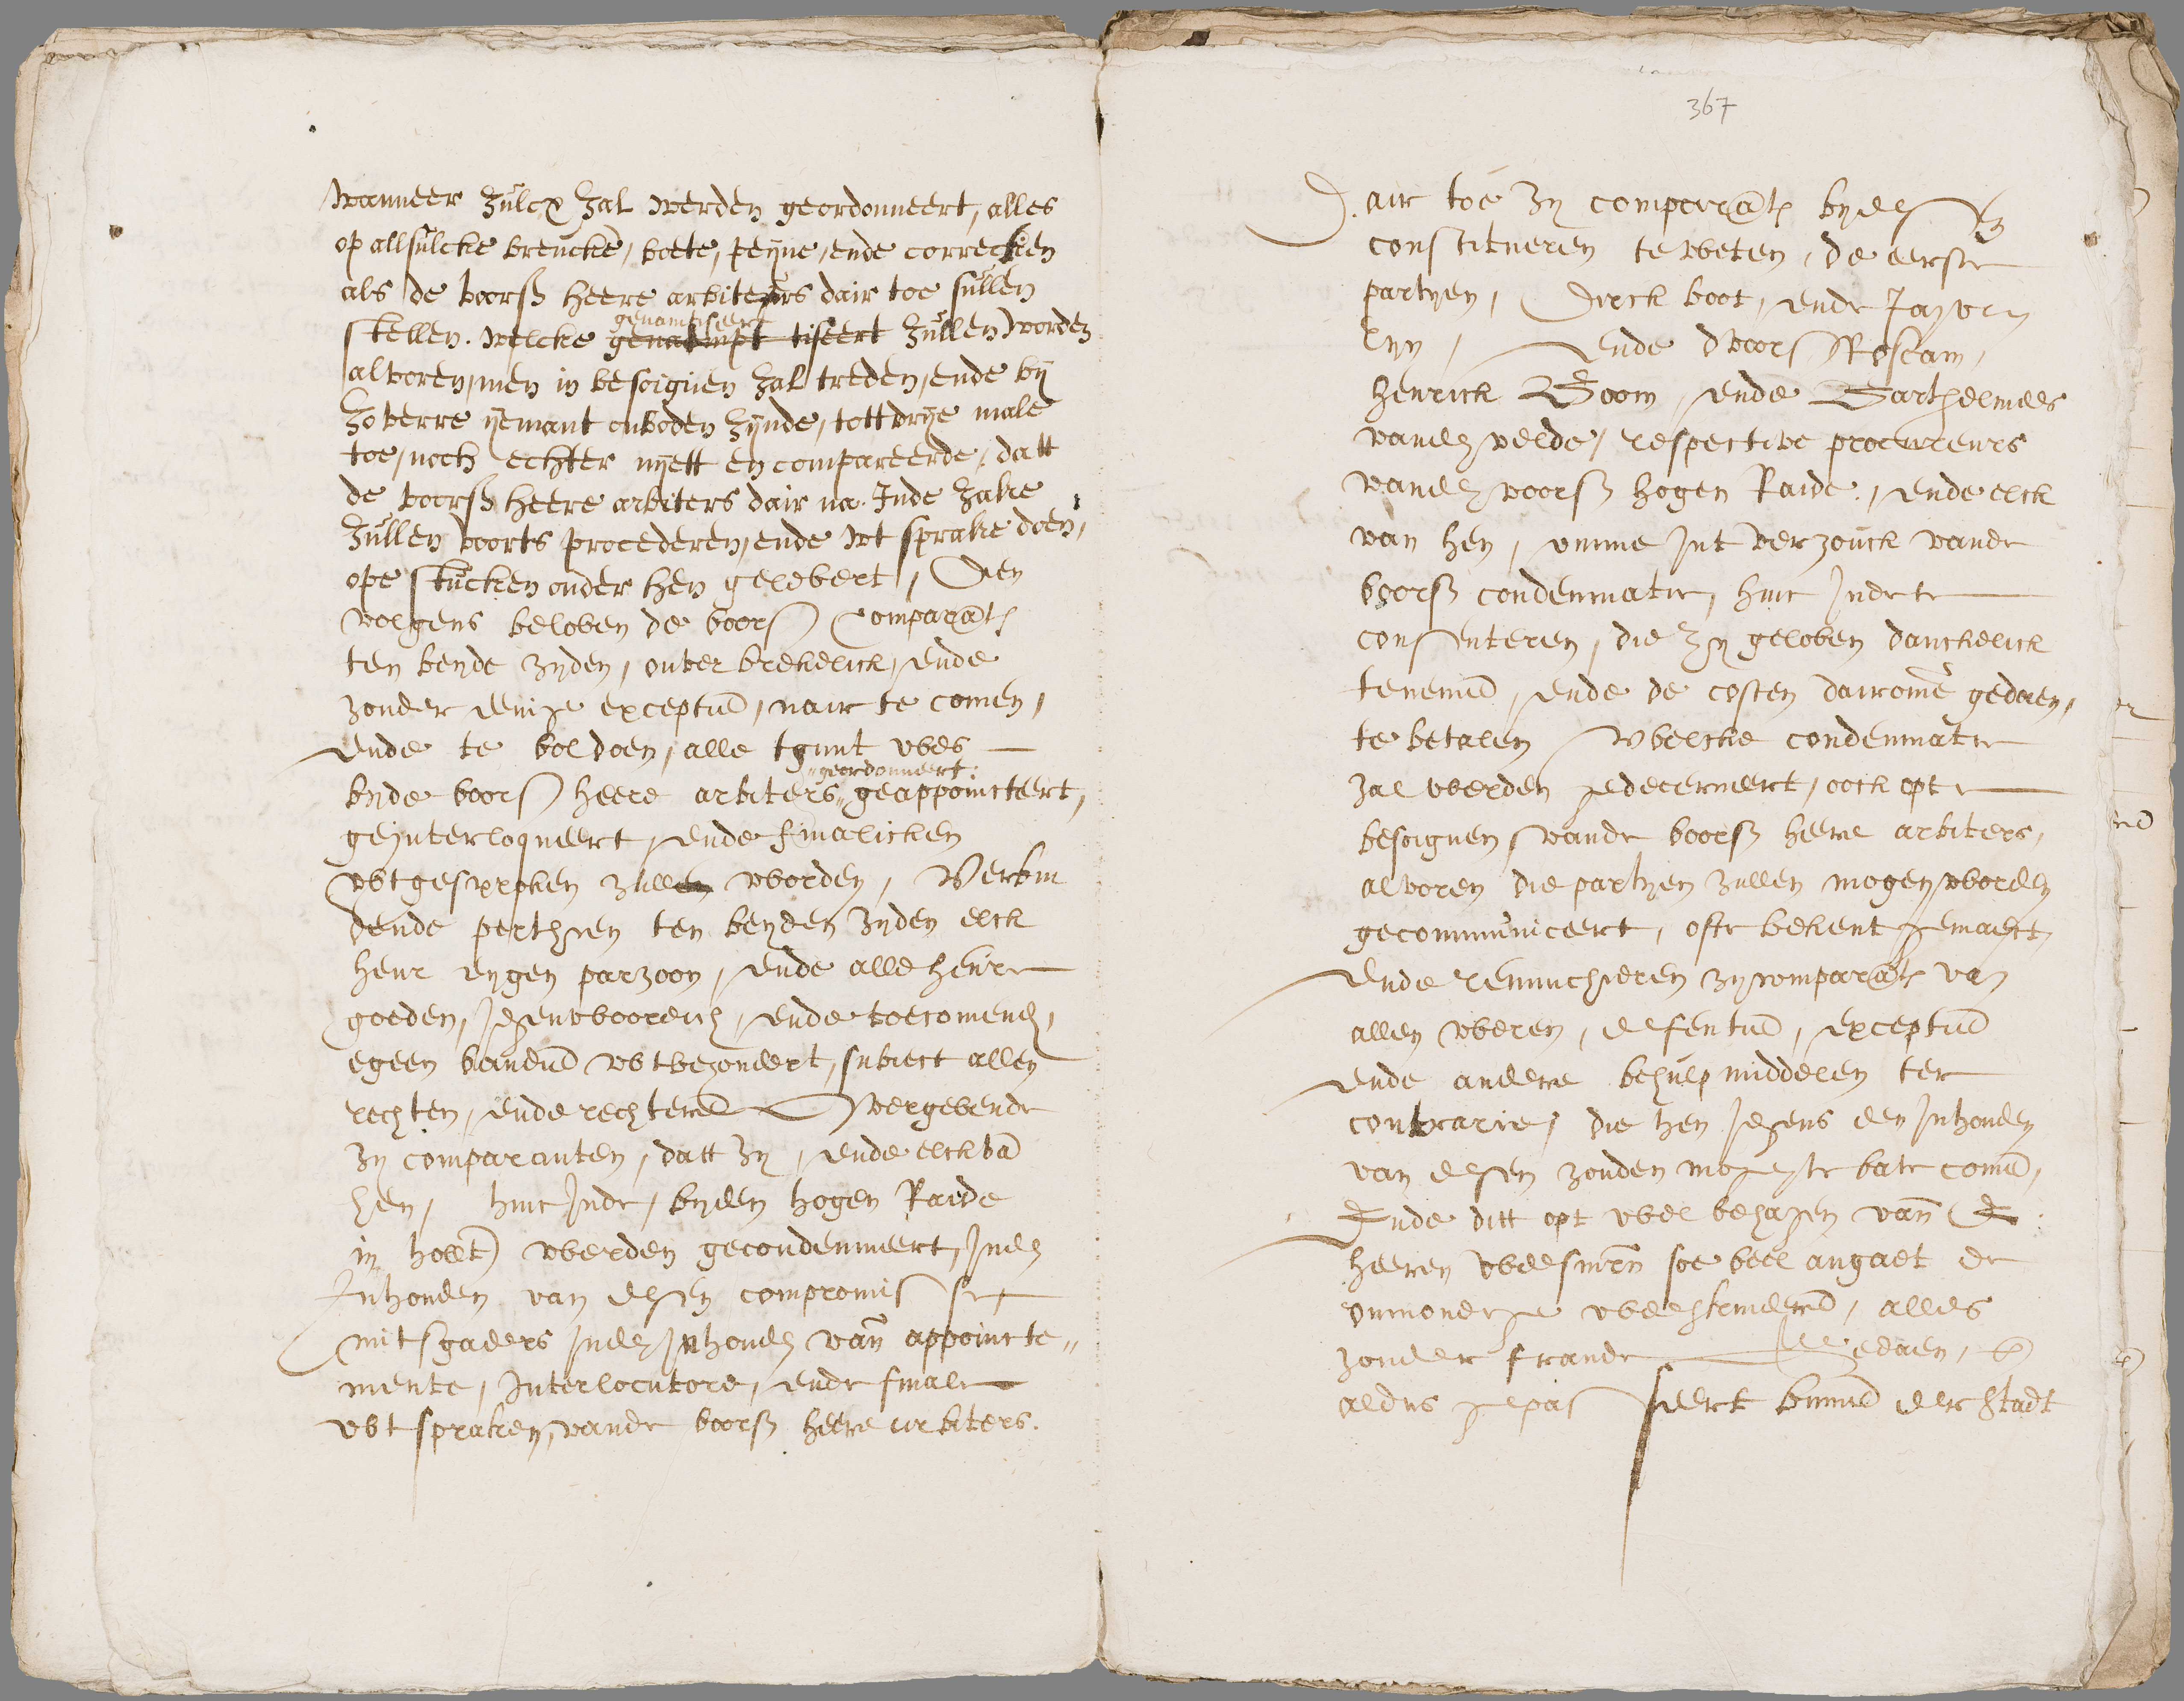 wanneer zulcx zal werden geordonneert, alles
op allsulcke breucke, boete, peyne, ende correctien
als de voorsz heere arbiteurs dair toe sullen
genamtiseert
stellen. welcke tiseert zullen worden
alvoren, men in besoignen zal treden, ende by
zo verre yemant onboden zynde, tott drye male
toe, noch echter nyett en compareerde, datt
de voorsz heere arbiters dair na. Inde zake
zullen voorts procederen, ende wt sprake doen,
ope stucken onder hen gelevert, Den
volgens beloven de voorsz Comparãten
ten beyde zyden, onverbrekelick, ende
zonder eenige exceptiẽ, nair te comen,
ende te voldoen, alle tgunt wes
geordonneert
byde voorsz heere arbiters geappoincteert,
geinterloqueert, ende finalicken
wtgesproken zullen worden, Verbin
dende perthyen ten beyden zyden elck
heur eygen parzoon, ende alle heure
goeden, jegenwoordich, ende toecomende,
egeen vandiẽ wtbezondert, subiect allen
rechten, ende rechterẽ Overgevende
zy comparanten, datt zy, ende elck vã
hen, hinc inde, byden hogen Raide
in hollt werden gecondemneert, inden
Inhouden van desen compromisse,
mitsgaders inden inhouden vañ appoincte„
mente, Interlocutore, ende finale
wtspraken, vande voorsz heere arbiters.
367
Dair toe zy comparãten byde
constitueren te weten, de eerste
partyen, Dirck boot, ende Jan van
Lyn, ende dvoorsz Roscam,
Henrick Boom, ende Barthelmees
vanden velde, respective procureurs
vanden voorsz hogen Raide, ende elck
van hen, omme jnt verzouck vande
voorsz condemnatie, hinc inde te
consenteren, die zy geloven danckelick
te nemẽ, ende de costen dairomẽ gedaen,
te betalen Welcke condemnatie
zal werden gedecerneert, oock opte
besoignen vande voorsz heere arbiters,
alvoren die partyen zullen mogen worden
gecommuniceert, ofte bekent gemaect,
Ende renunchieren zy comparãten van
allen weren, defentiẽ, exceptiẽ
ende andere behulp middelen ter
contrarie, die hen jegens den inhouden
van desen zouden mogen te bate comẽ,
Ende ditt opt welbehagen vañ E:
heeren weesmrñ soe veel angaet de
onmondige weeskinderẽ, alles
zonder fraude Gedaen, eñ
aldus gepasseert binnẽ der Stadt